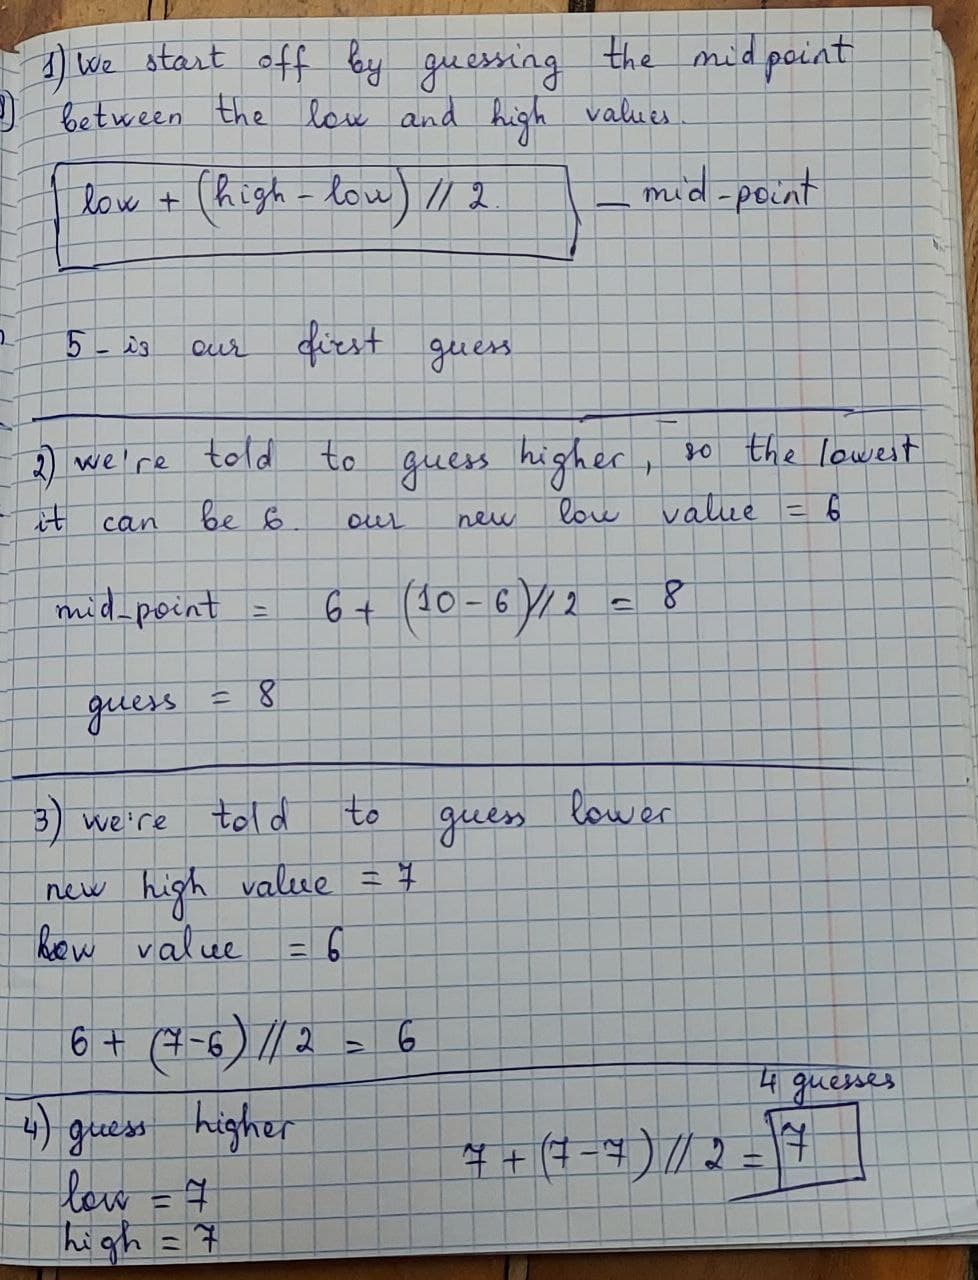 1) we start off by guessing the midpoint
between the low and high values.
low + (high - low) // 2. — mid-point
5 - is our first guess
2) we're told to guess higher, so the lowest
it can be 6. our new low value = 6
mid-point = 6 + (10 - 6) // 2 = 8
guess = 8
3) we're told to guess lower
new high value = 7
low value = 6
6 + (7-6) // 2 = 6
4 guesses
4) guess higher
7 + (7-7) // 2 = 7
low = 7
high = 7